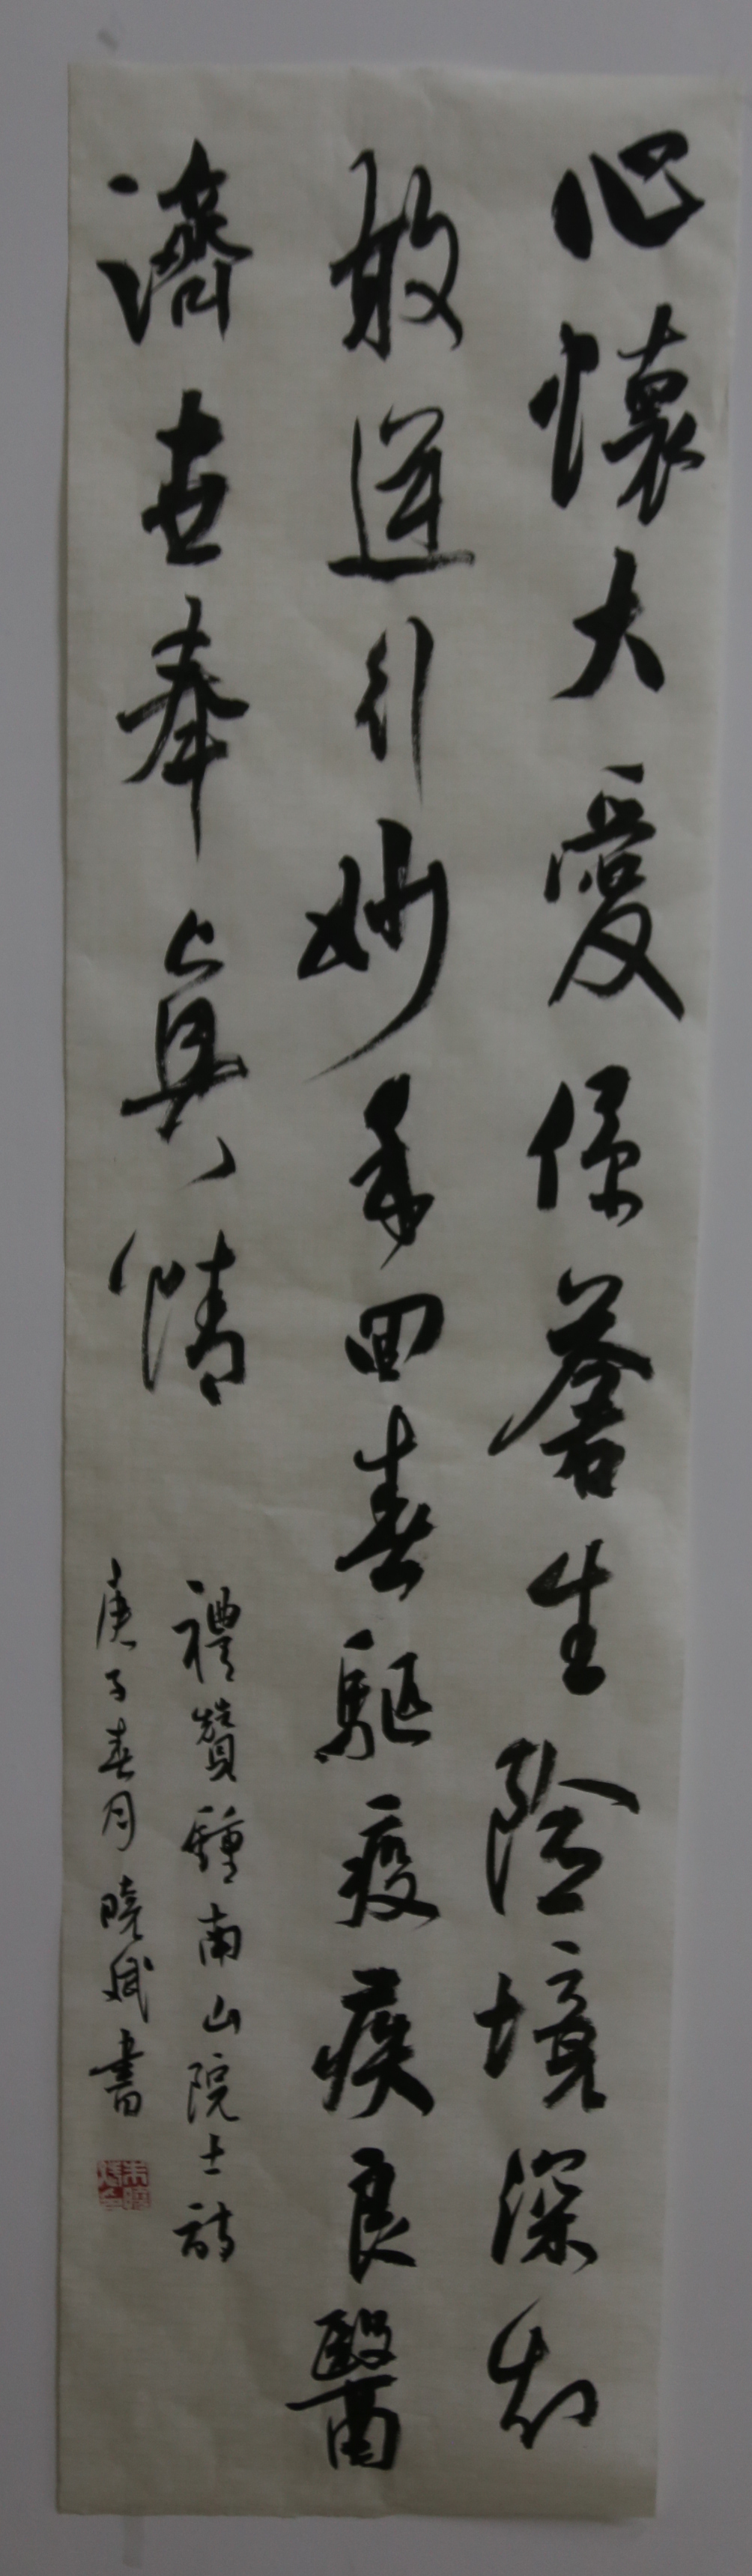 心懷大愛保蒼生險境深知
敢逆行妙手回春驅疫疾良醫
濟世奉真情
禮贊鍾南山院士詩
庚子春月曉斌書